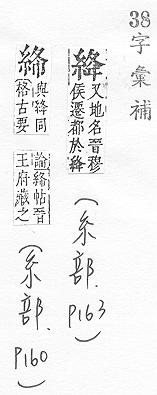 38字彙補
絳
又地名晉穆
侯遷都於絳
(糸部. P163)
與絳同
(格古要
論帖晉
王府藏之
(糸部. P160)